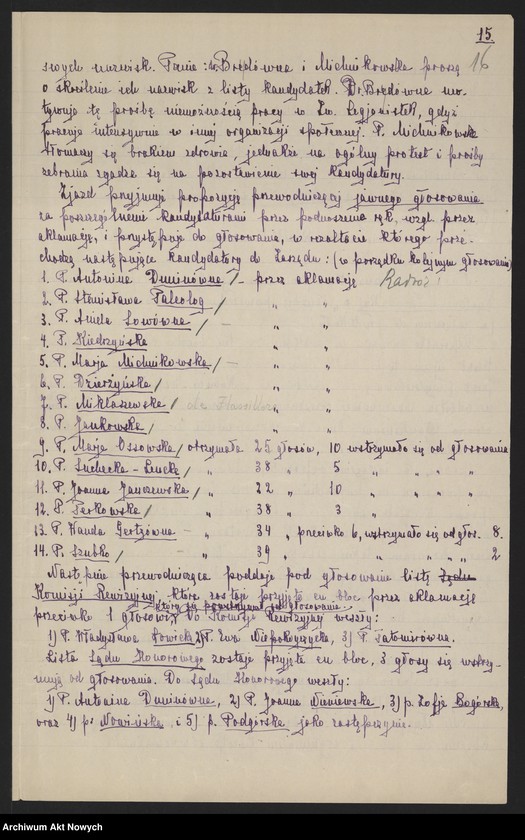 15
16
swych nazwisk. Panie: dr. Brędówna i Michnikowska proszą
o skreślenie ich nazwisk z listy kandydatek. Dr. Brędówna mo-
tywuje tę prośbę niemożnością pracy w Zw. Legjonistek, gdyż
pracuje intensywnie w innej organizacji społecznej. P. Michnikowska
tłomaczy się brakiem zdrowia, jednakże na ogólny protest i prośby
zebrania zgadza się na pozostawienie swej kandydatury.
Zjazd przyjmuje propozycję przewodniczącej jawnego głosowania
za poszczególnemi kandydaturami przez podnoszenie rąk, wzgl. przez
aklamację, i przystępuje do głosowania, w rezultacie którego prze-
chodzą następujące kandydatury do Zarządu: (w porządku kolejnym głosowania)
1. P. Antonina Duninówna / - przez aklamację
2. P. Stanisława Paleolog / " "
3. P. Aniela Sowówna / - " "
4. P. Kiedrzyńska " "
5. P. Marja Michnikowska / - " "
6. P. Dzierżyńska / " "
7. P. Miklaszewska / " "
8. P. Jankowska / " "
9. P. Marja Ossowska / otrzymała 25 głosów, 10 wstrzymało się od głosowania
10. P. Suchecka - / " 38 " 5 " " "
11. P. Joanna Janczewska / " 22 " 10 " " "
12. P. / " 38 " 3 " " "
13. P. Wanda Gertzówna - " 34 " przeciwko 6, wstrzymało się od głos. 8.
14. P. Szubko / " 39 " " " " " 2
Następnie przewodnicząca poddaje pod głosowanie listę
Komisji Rewizyjnej, która zostaje przyjęta en bloc przez aklamację
przeciwko 1 głosowi. Do Komisji Rewizyjnej weszły:
1) P. Władysława 2) P. Ewa 3) P. Tatomirówna.
Lista Sądu Honorowego zostaje przyjęta en bloc, 3 głosy się wstrzy-
mują od głosowania. Do Sądu Honorowego weszły:
1) P. Antonina Duninówna, 2) P. Joanna 3) p. Zofja Bogórska,
oraz 4) p. i 5) p. Podgórska jako zastępczynie.
Archiwum Akt Nowych